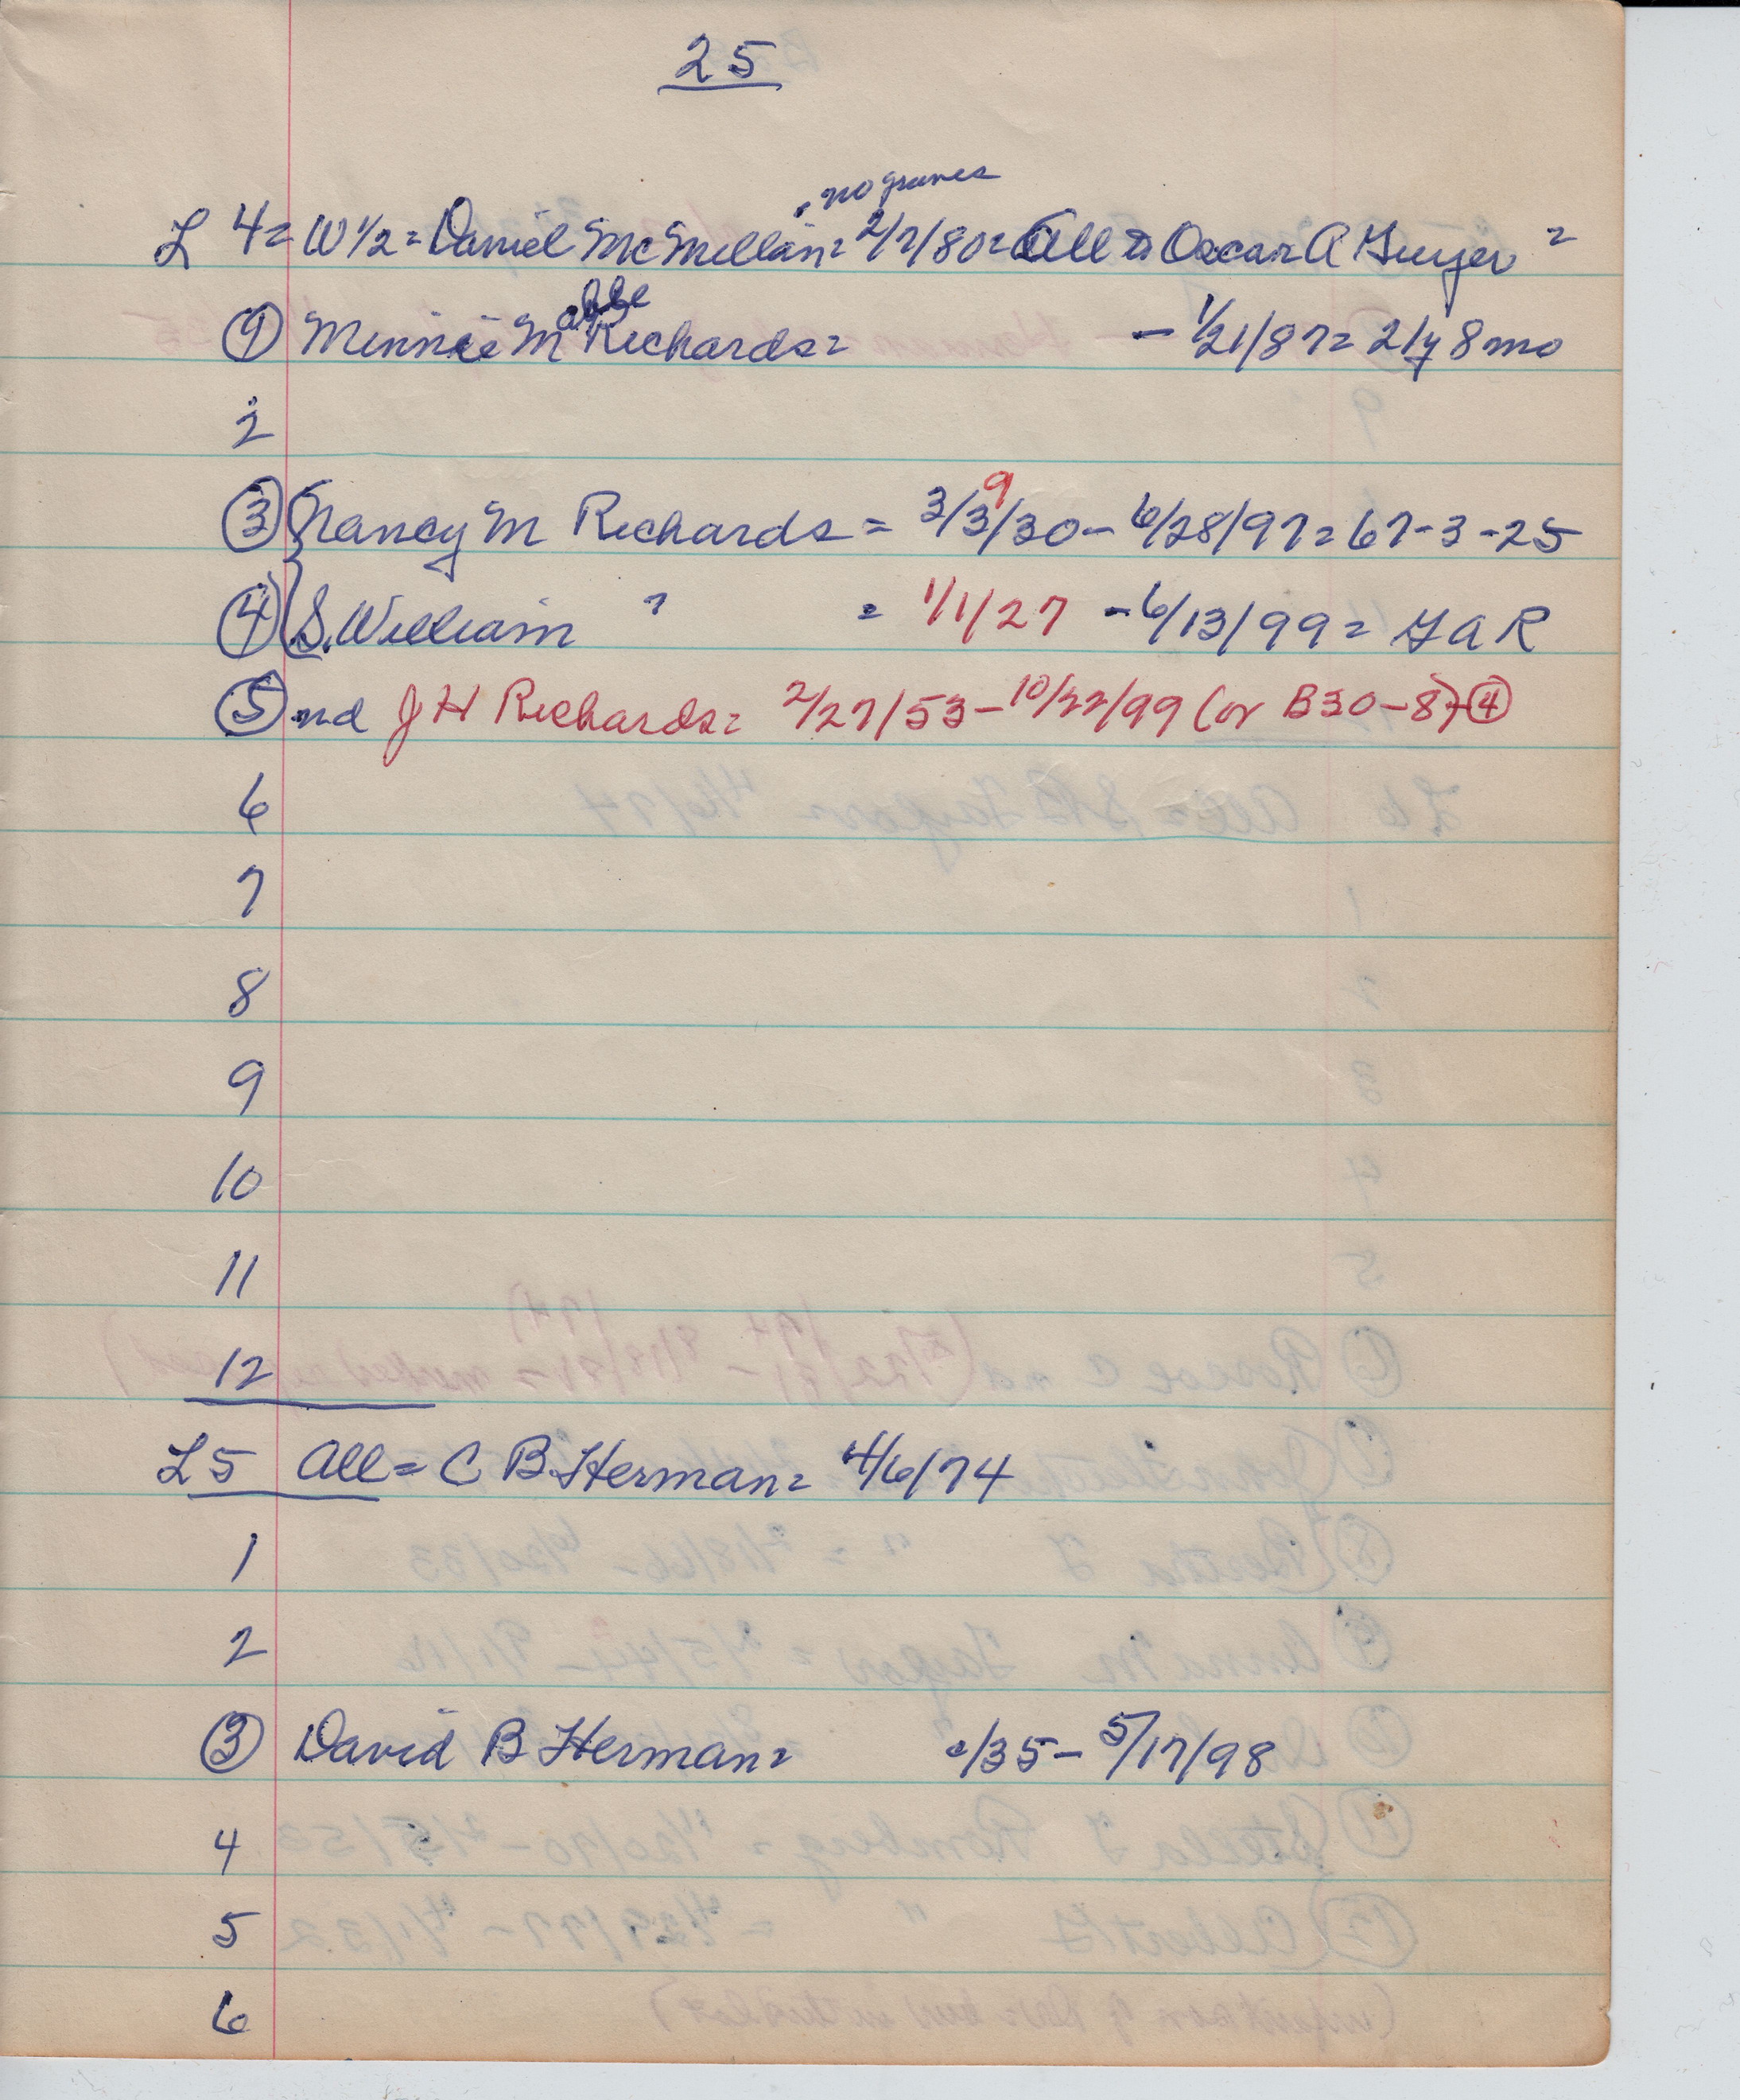 25
no graves
L 4 = W 1/2 = Daniel McMillan = 2/7/80 = All to Oscar A Guyer =
① Minnie Mabbe Richards = - 1/21/87 = 21y 8mo
2
③ Nancy M Richards = 3/3/30 - 6/28/97 = 67-3-25
9
④ S. William " = 1/1/27 - 6/13/99 = GAR
⑤ nd J H Richards = 2/27/53 - 10/22/99 (or B30-8) - ④
6
7
8
9
10
11
12
L5 All = C B Herman = 4/6/74
1
2
③ David B Herman = c/35 - 5/17/98
4
5
6